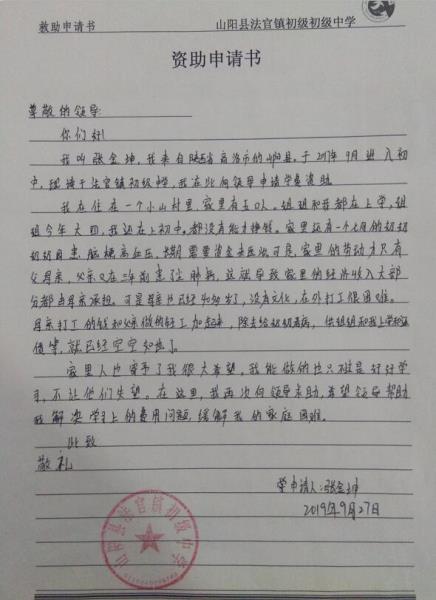 救助申请书
山阳县法官镇初级初级中学
资助申请书
尊敬的领导:
你们好!
我叫张金坤,我来自陕西省商洛市的山阳县。于2017年9月进入初
中,现读于法官镇初级中学,我在此向领导申请学费资助。
我在住在一个小山村里,家里有五口人。姐姐和我都在上学,姐
姐今年大四,我还在上初中。都没有能力挣钱。家里还有一个七旬的奶奶
奶奶患脑梗高血压,长期需要资金来医治可是,家里的劳动力只有
父母亲,父亲又在三年前患了肺病,这就导致家里的经济收入大部
分都由母亲承担。可是母亲也已经40多岁了,没有文化,在外打工很困难。
母亲打工的钱和父亲做的轻工加起来,除去给奶奶看病,供姐姐和我上学和还
债等,就已经空空如也了。
家里人也寄予了我很大希望。我能做的也只不过是好好学
习,不让他们失望。在这里,我再次向领导求助,希望领导帮助
我解决学习上的费用问题,缓解我的家庭困难。
此致
敬礼
申请人:张金坤
2019年9月27日
山阳县法官镇初级中学